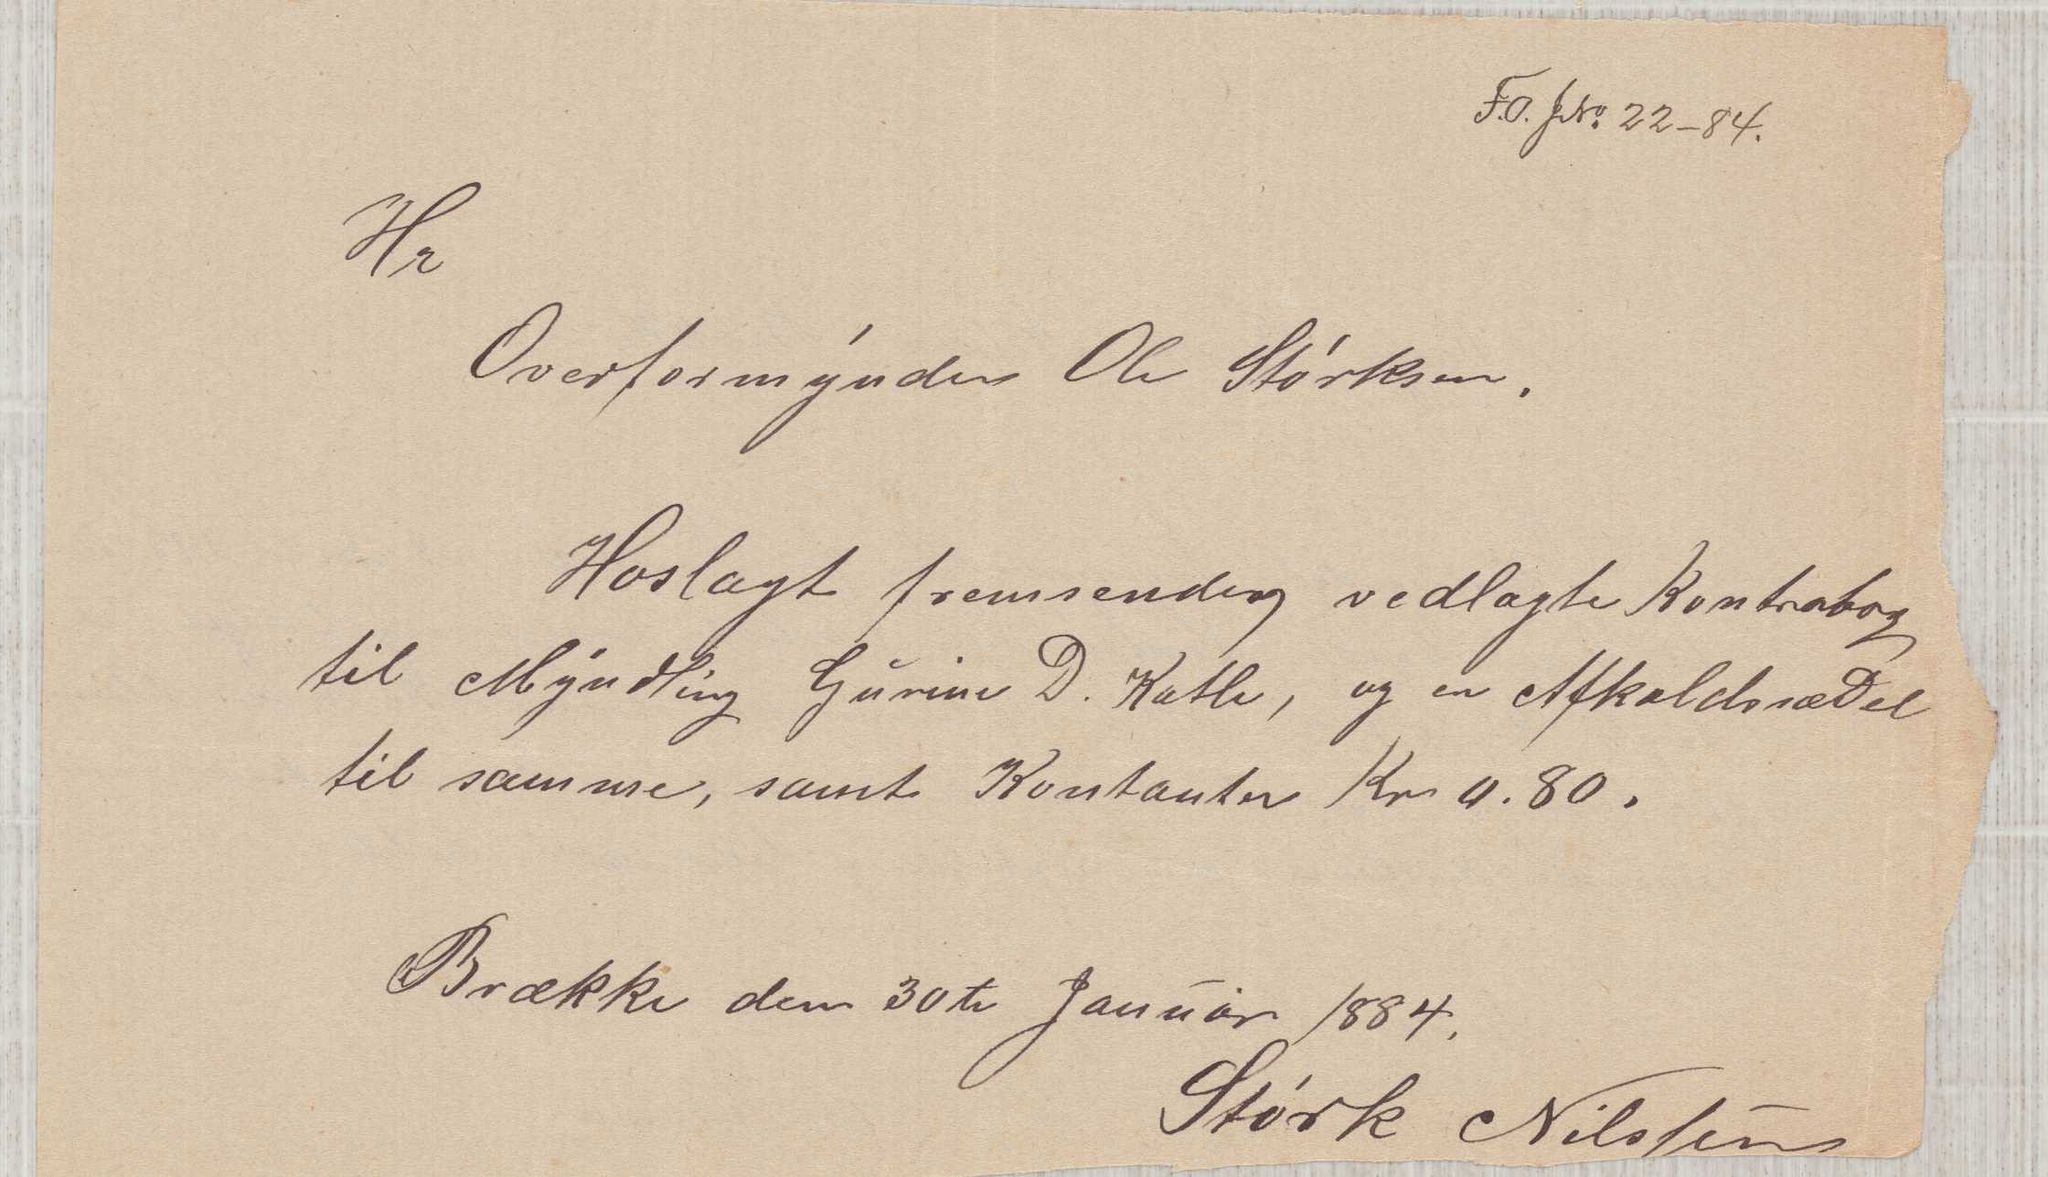 F.O. JNo. 22-84.
Hr
Overformynder Ole Størksen.
Hoslagt fremsendes vedlagte Kontrabog
til Myndling Gurine D. Katle, og en Afkaldssedel
til samme, samt Kontanter Kr 0.80.
Brække den 30te Januar 1884.
Størk Nilssen